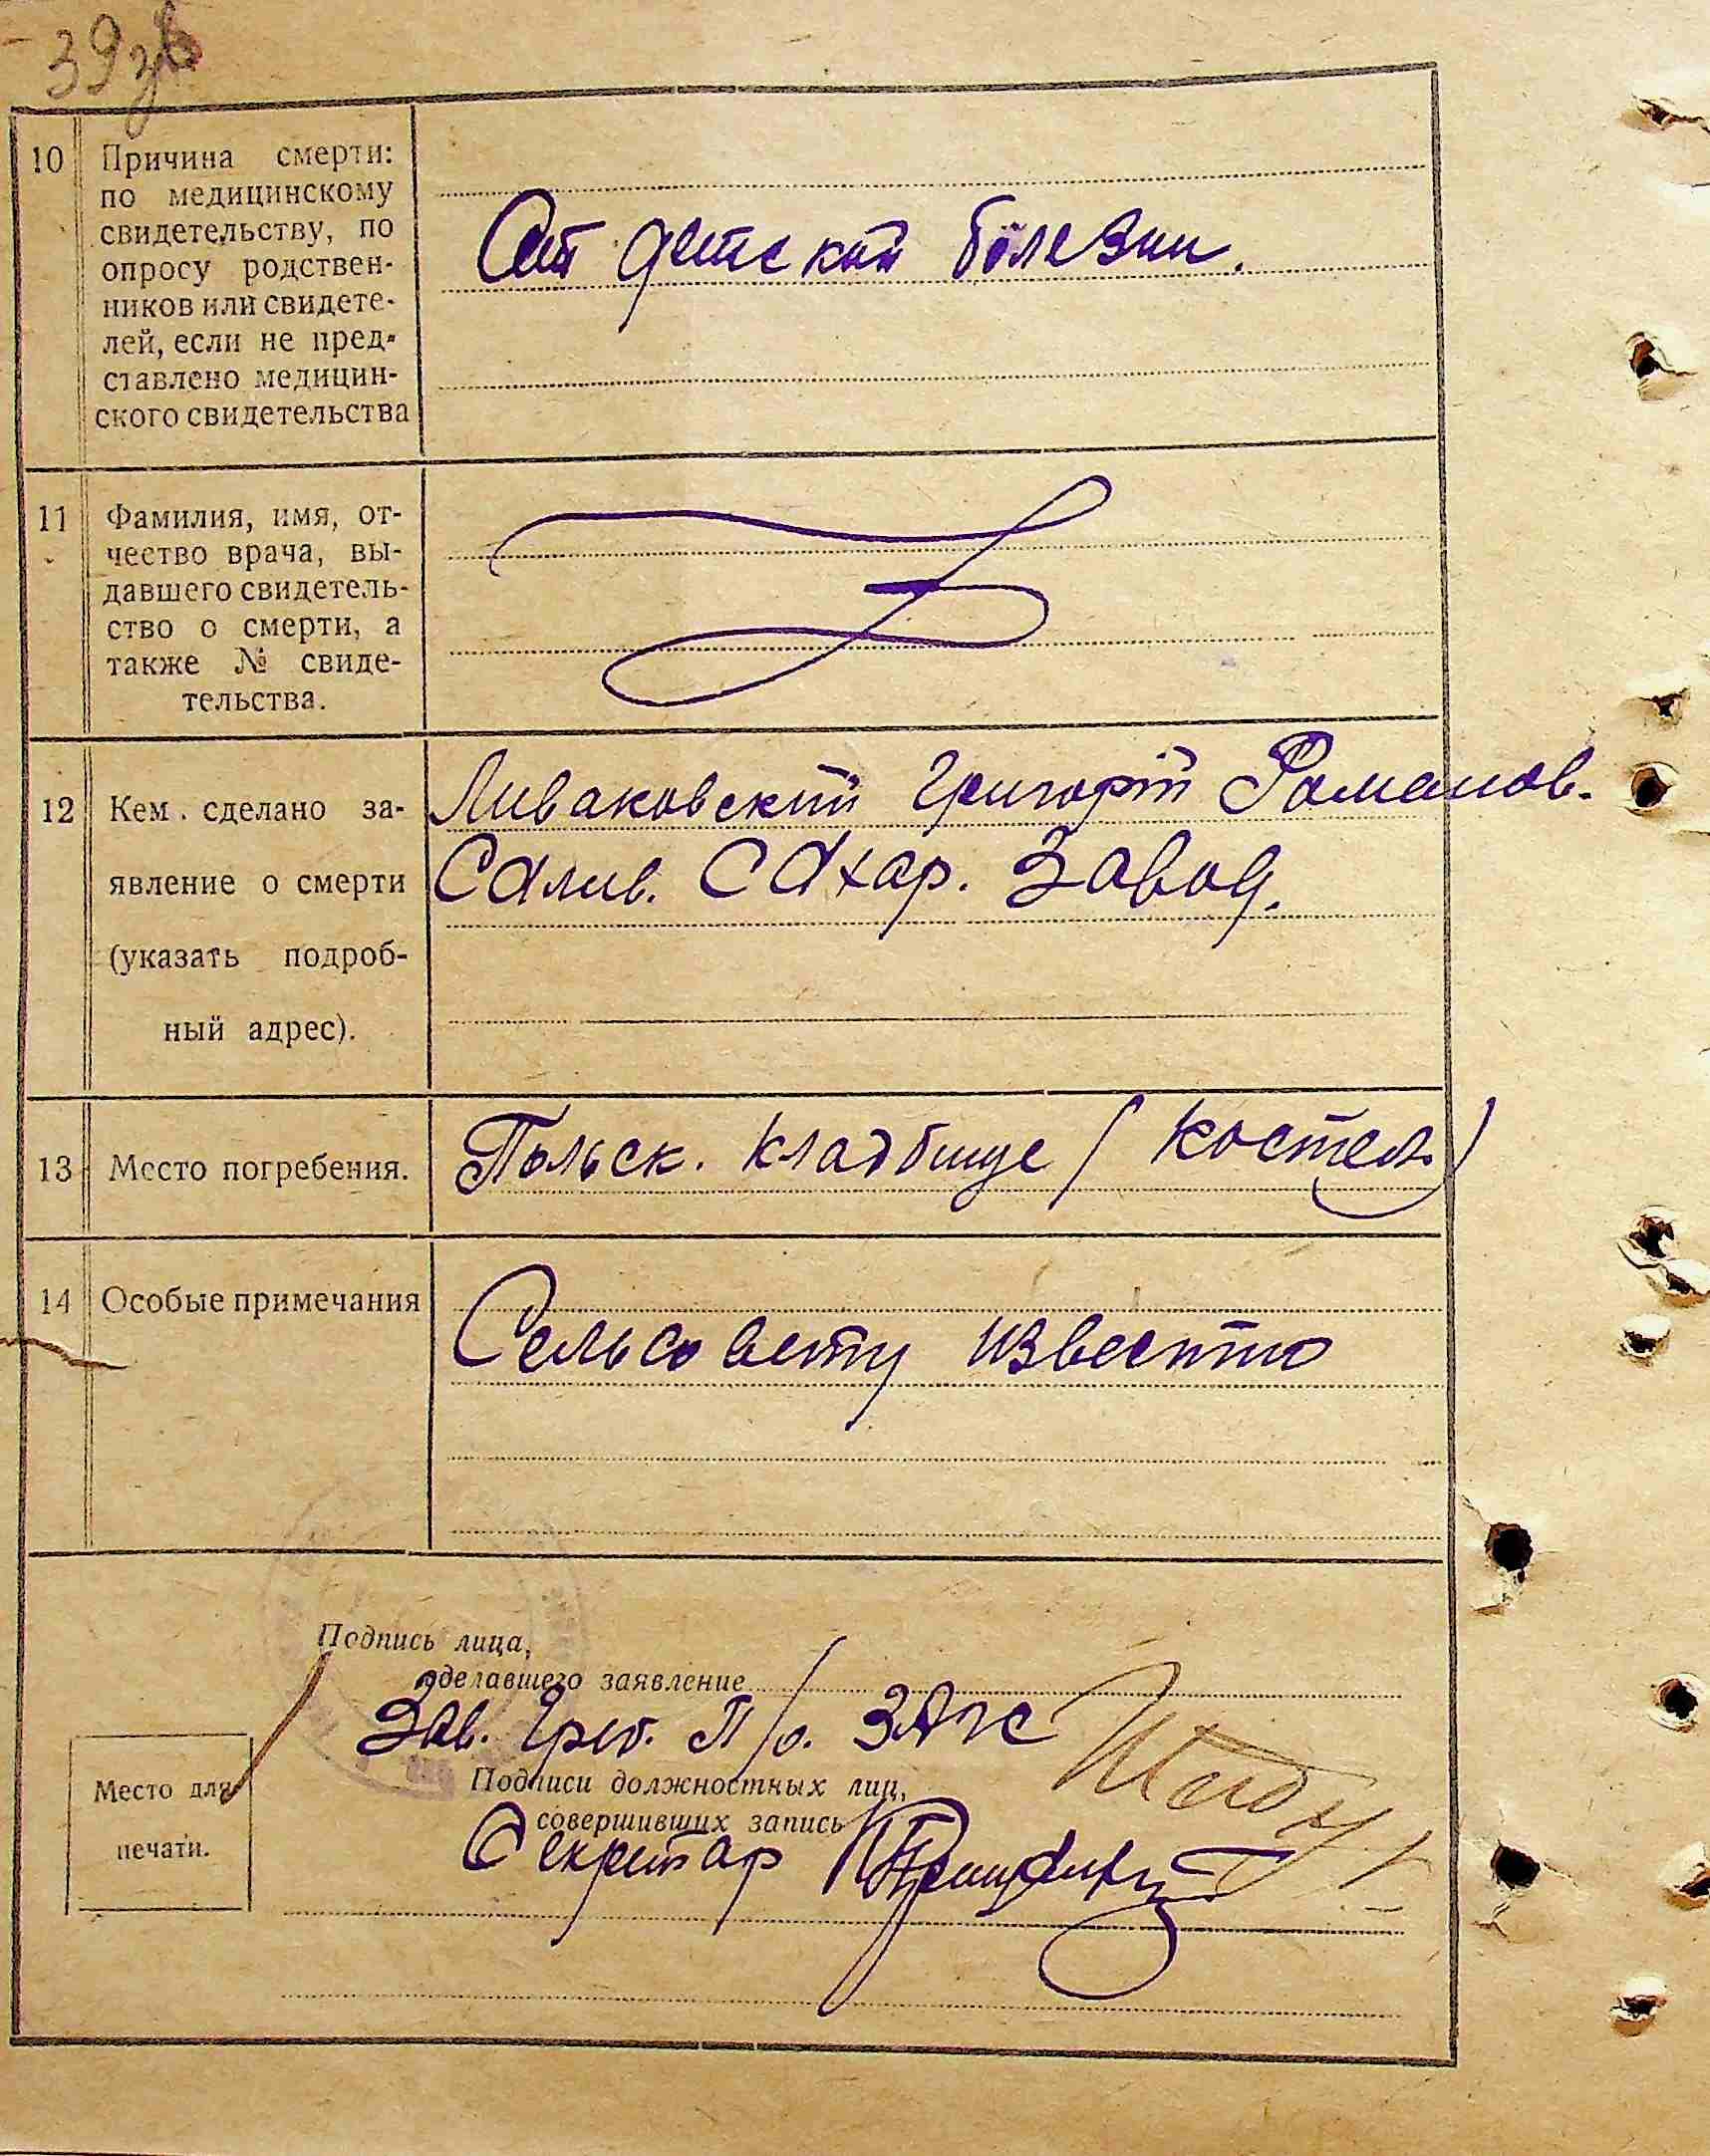 39зв
10 Причина смерти:
по медицинскому
свидетельству, по
опросу родствен-
ников или свидете-
лей, если не пред-
ставлено медицин-
ского свидетельства
От детской болезни.
11 Фамилия, имя, от-
чество врача, вы-
давшего свидетель-
ство о смерти, а
также № свиде-
тельства.
12 Кем сделано за-
явление о смерти
(указать подроб-
ный адрес).
Ливаковский Григорій Романов.
Салив. Сахар. Завод.
13 Место погребения.
Польск. кладбище (костел)
14 Особые примечания
Сельсовету известно
Подпись лица,
сделавшего заявление
Зав. П/о. ЗАГС
Подписи должностных лиц,
совершивших запись
Секретар
Место для
печати.